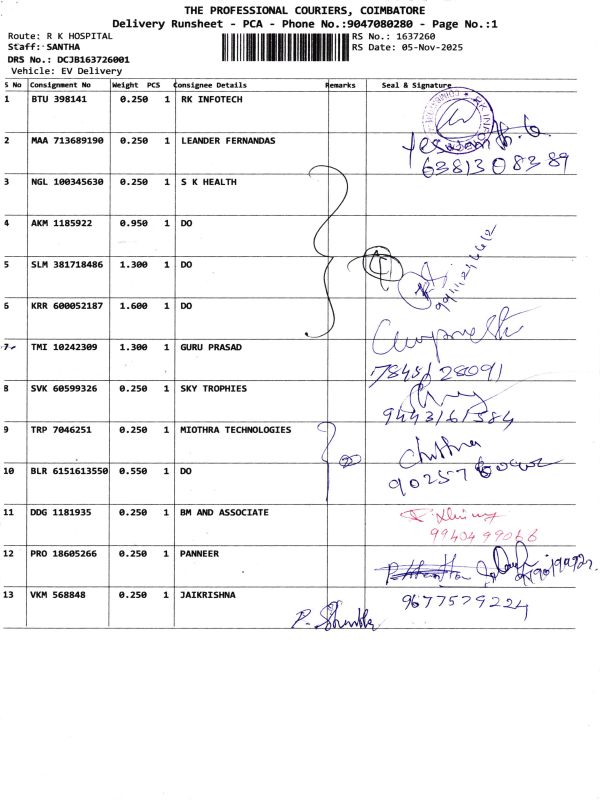 THE PROFESSIONAL COURIERS, COIMBATORE
Delivery Runsheet - PCA - Phone No.:9047080280 - Page No.:1
Route: R K HOSPITAL RS No.: 1637260
Staff: SANTHA RS Date: 05-Nov-2025
DRS No.: DCJB163726001
Vehicle: EV Delivery
S No Consignment No Weight PCS Consignee Details Remarks Seal & Signature
1 BTU 398141 0.250 1 RK INFOTECH
2 MAA 713689190 0.250 1 LEANDER FERNANDAS
6381308389
3 NGL 100345630 0.250 1 S K HEALTH
4 AKM 1185922 0.950 1 DO
5 SLM 381718486 1.300 1 DO 4
6 KRR 600052187 1.600 1 DO
7 TMI 10242309 1.300 1 GURU PRASAD
7845128091
8 SVK 60599326 0.250 1 SKY TROPHIES
9443161584
9 TRP 7046251 0.250 1 MIOTHRA TECHNOLOGIES
Chithra
10 BLR 6151613550 0.550 1 DO
11 DDG 1181935 0.250 1 BM AND ASSOCIATE
9940499066
12 PRO 18605266 0.250 1 PANNEER
13 VKM 568848 0.250 1 JAIKRISHNA
9677579224